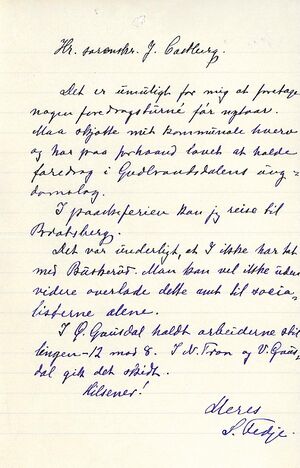 Hr. sorenskr. J. Castberg.
Det er umuligt for mig at foretage
nogen foredragsturné før nytaar.
Maa skjøtte mit kommunale hverv
og har paa forhaand lovet at holde
foredrag i Gudbrandsdalens ung-
domslag.
I paaskeferien kan jeg reise til
Bratsberg.
Det var underligt, at I ikke har tat
med Buskerud. Man kan vel ikke uden
videre overlade dette amt til socia-
listerne alene.
I Ø. Gausdal holdt arbeiderne stil-
lingen - 12 mod 8. I N. Fron og V. Gaus-
dal gik det skidt.
Hilsener!
Deres
S.